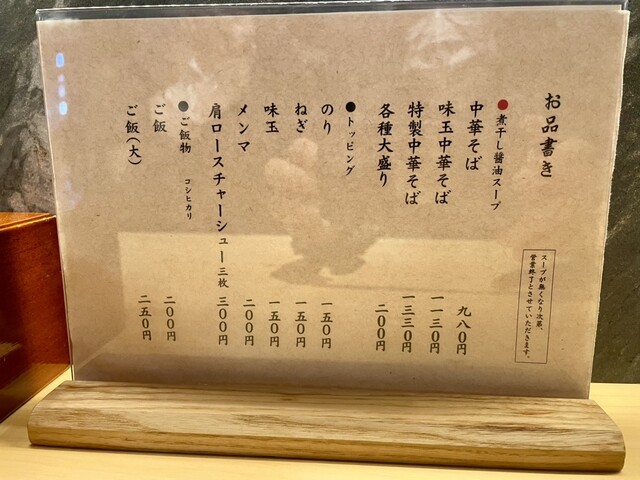 お品書き
スープが無くなり次第、
営業終了とさせていただきます。
●煮干し醤油スープ
中華そば 九八〇円
味玉中華そば 一一三〇円
特製中華そば 一三三〇円
各種大盛り 二〇〇円
●トッピング
のり 一五〇円
ねぎ 一五〇円
味玉 一五〇円
メンマ 二〇〇円
肩ロースチャーシュー三枚 三〇〇円
●ご飯物 コシヒカリ
ご飯 二〇〇円
ご飯(大) 二五〇円